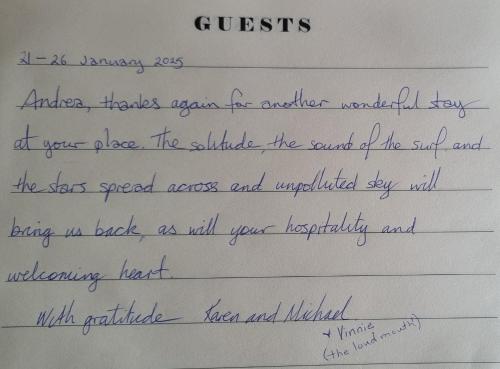 GUESTS
21-26 January 2025
Andrea, thanks again for another wonderful stay
at your place. The solitude, the sound of the surf, and
the stars spread across and unpolluted sky will
bring us back, as will your hospitality and
welcoming heart.
With gratitude Karen and Michael
+ Vinnie
(the loud mouth)